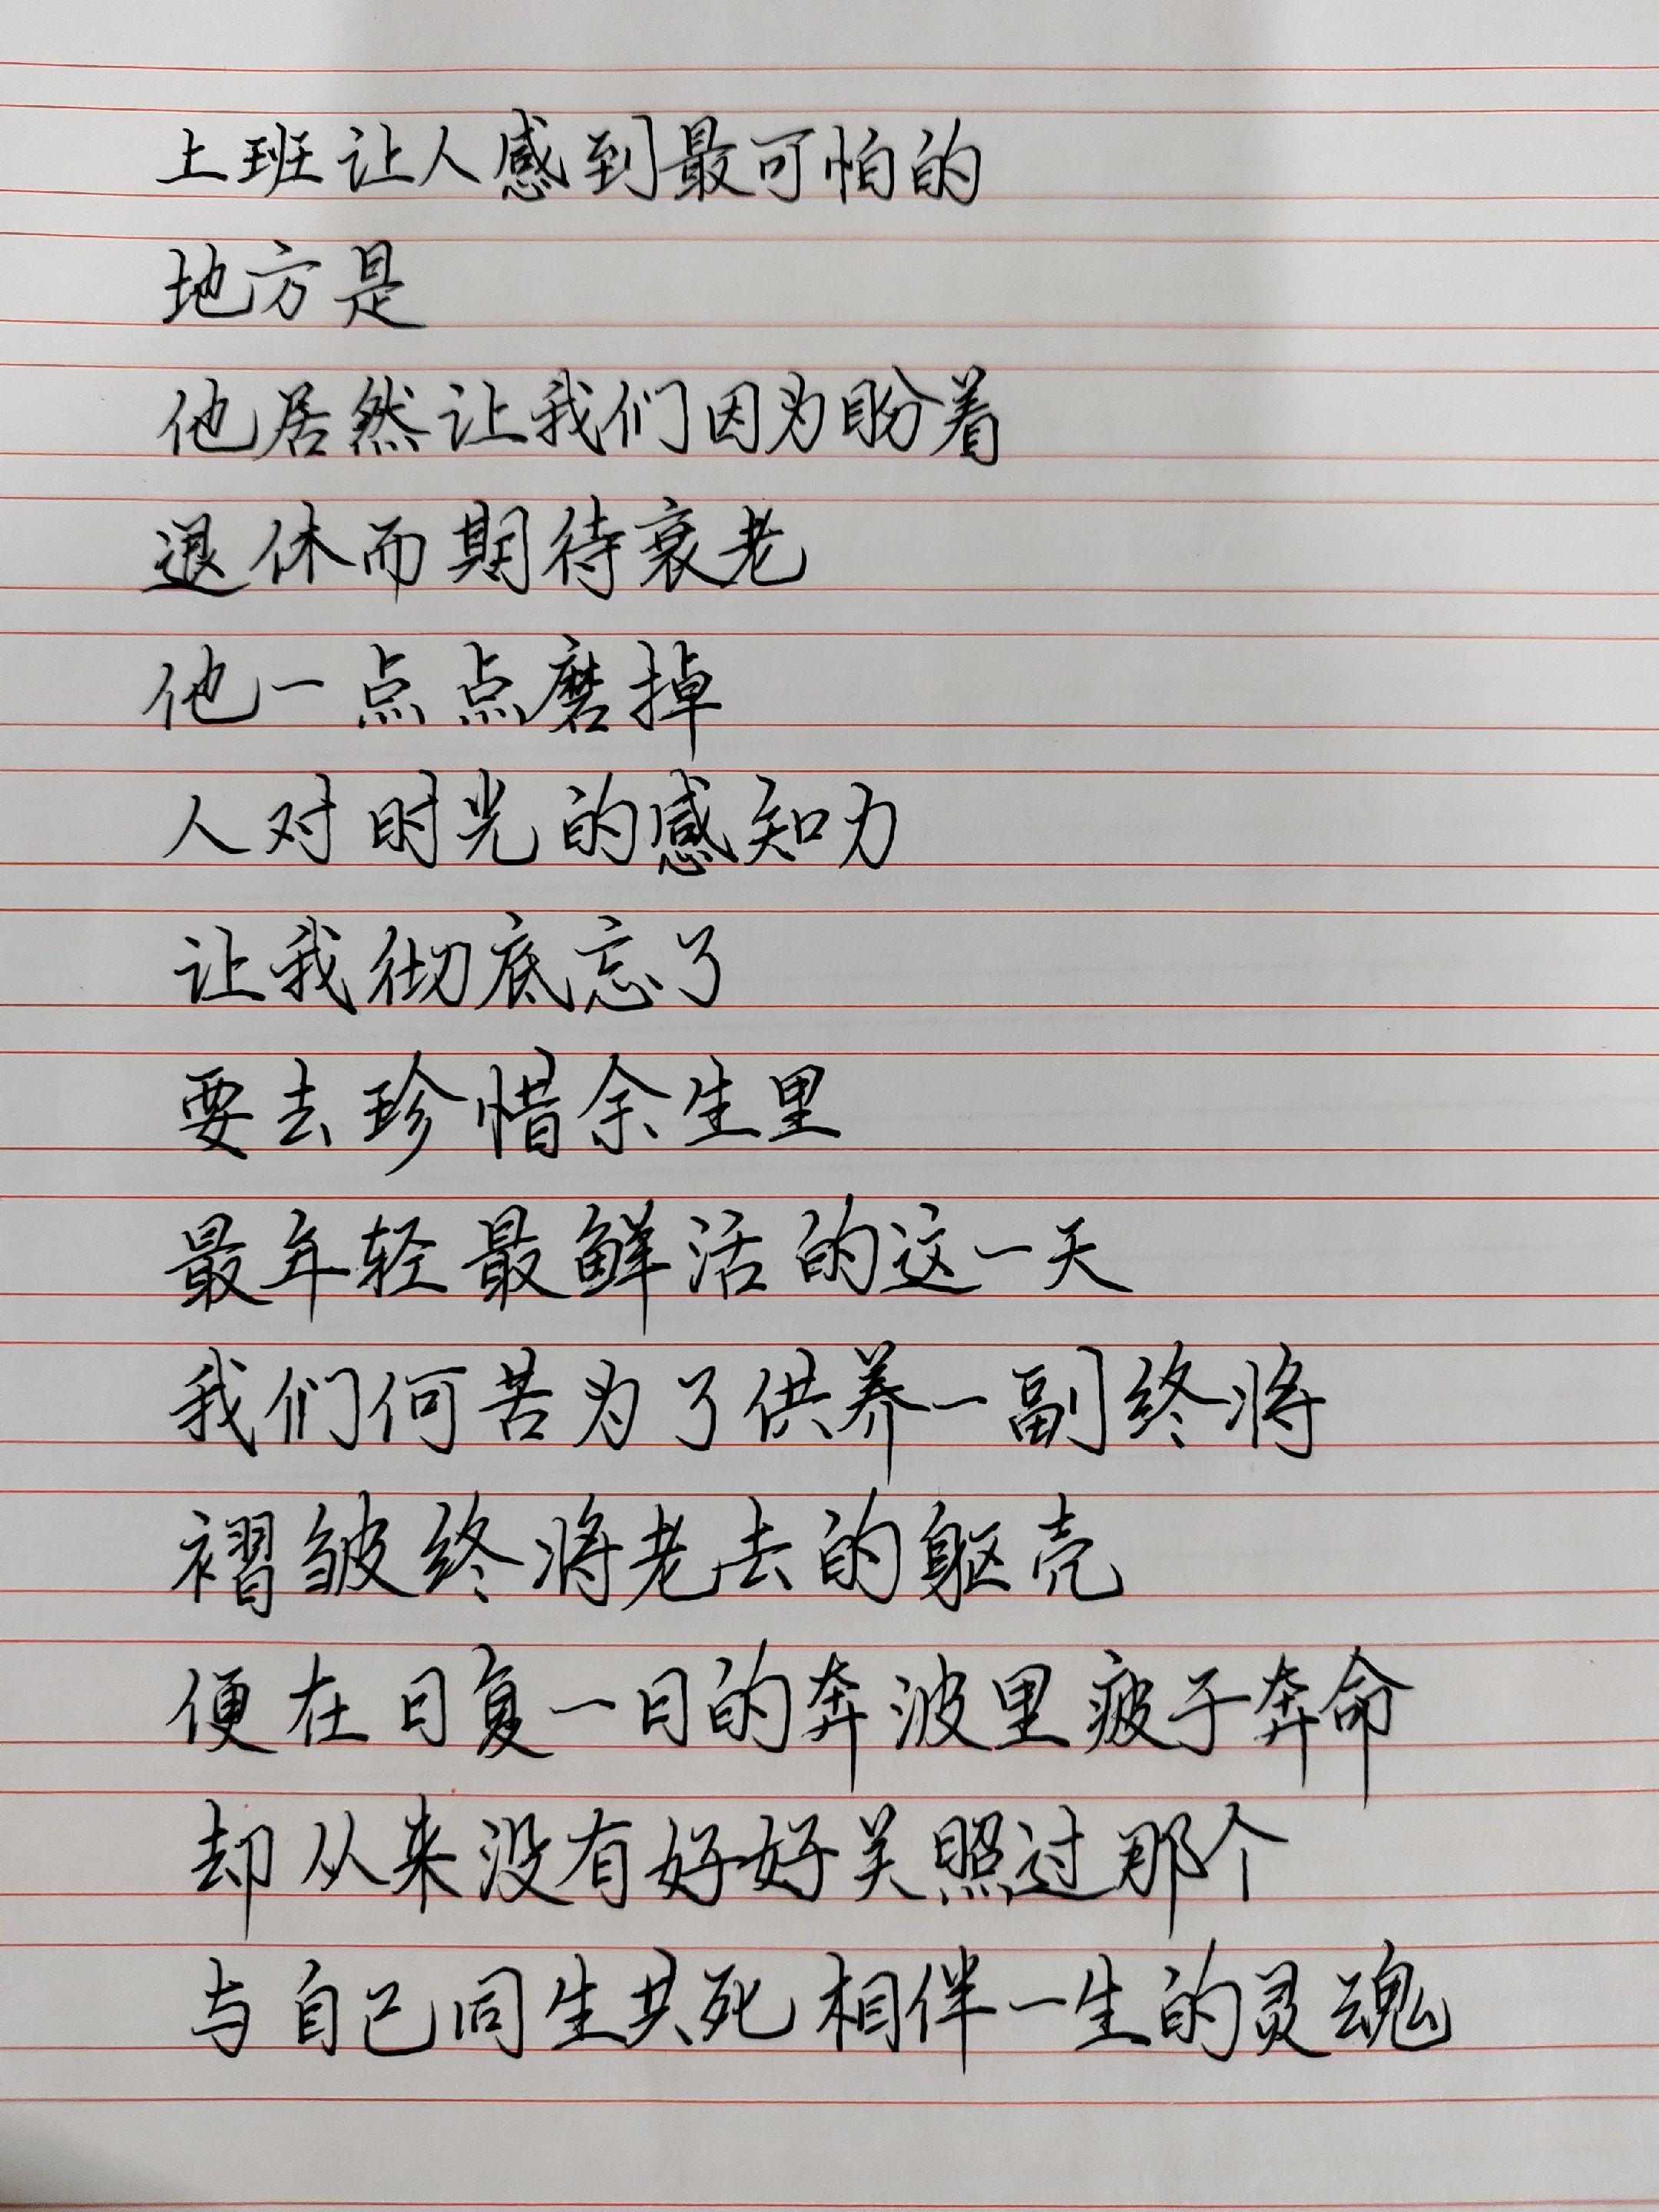 上班让人感到最可怕的
地方是
他居然让我们因为盼着
退休而期待衰老
他一点点磨掉
人对时光的感知力
让我彻底忘了
要去珍惜余生里
最年轻最鲜活的这一天
我们何苦为了供养一副终将
褶皱终将老去的躯壳
便在日复一日的奔波里疲于奔命
却从来没有好好关照过那个
与自己同生共死相伴一生的灵魂